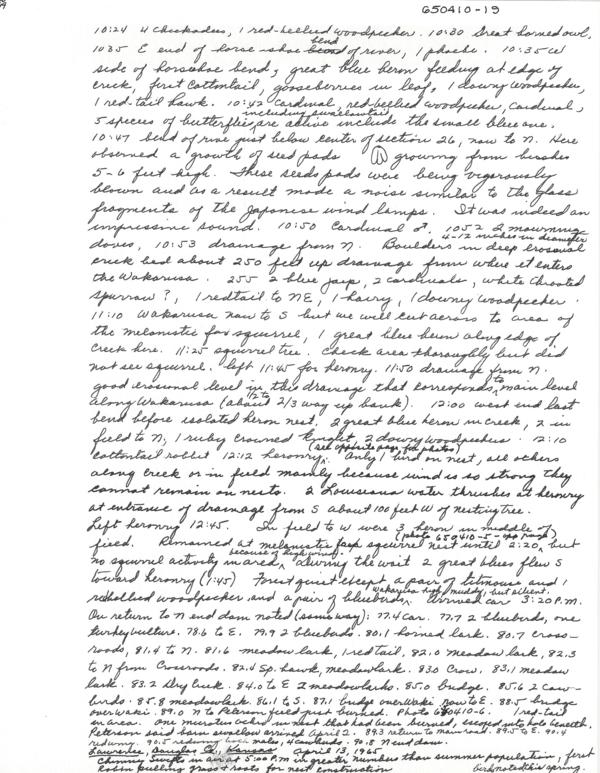 650410-19
10:24 4 chickadees, 1 red-bellied woodpecker. 10:30 Great horned owl,
1035 E end of horse-shoe bend of river, 1 phoebe. 10:35 W
side of horseshoe bend, great blue heron feeding at edge of
creek, first cottontail, gooseberries in leaf, 1 downy woodpecker,
1 red-tail hawk. 10:42 cardinal, red-bellied woodpecker, cardinal,
5 species of butterflies, including swallowtail, are active include the small blue one.
10:47 bend of river just below center of section 26, now to N. Here
observed a growth of seed pods growing from bushes
5-6 feet high. These seeds pods were being vigorously
blown and as a result made a noise similar to the glass
fragments of the Japanese wind lamps. It was indeed an
impressive sound. 10:50 Cardinal ♂. 1052 2 mourning
doves, 10:53 drainage from N. Boulders 4-12 inches in diameter in deep erosional
creek bed about 250 feet up drainage from where it enters
the Wakarusa. 255 2 blue jays, 2 cardinals, white throated
sparrow?, 1 redtail to NE, 1 hairy, 1 downy woodpecker.
11:10 Wakarusa now to S but we will cut across to area of
the melanistic fox squirrel, 1 great blue heron along edge of
creek here. 11:25 squirrel tree. Check area thoroughly but did
not see squirrel. left 11:45 for heronry. 11:50 drainage from N.
good erosional level in this drainage that corresponds to main level
along Wakarusa (about 1/2 to 2/3 way up bank). 12:00 west end last
bend before isolated heron nest. 2 great blue heron in creek, 2 in
field to N, 1 ruby crowned kinglet, 2 downy woodpeckers. 12:10
cottontail rabbit 12:12 heronry (see opposite page for photos). Only 1 bird on nest, all others
along creek or in field mainly because wind is so strong they
cannot remain on nests. 2 Louisiana water thrushes at heronry
at entrance of drainage from S about 100 feet W of nesting tree.
Left heronry 12:45. In field to W were 3 heron in middle of
field. Remained at melanistic fox squirrel nest (photo 650410-5- opp page) until 2:20, but
no squirrel activity in area because of high wind. During the wait 2 great blues flew S
toward heronry (1:45) Forest quiet except a pair of titmouse and 1
redbellied woodpecker and a pair of bluebirds. Wakarusa high, muddy, but silent. Arrived car 3:20 P.M.
On return to N end dam noted (same way): 77.4 car. 77.7 2 bluebirds, one
turkey vulture. 78.6 to E. 79.9 2 bluebirds. 80.1 horned lark. 80.7 cross-
roads, 81.4 to N. 81.6 meadow lark, 1 redtail, 82.0 meadow lark, 82.3
to N from Crossroads. 82.4 Sp. hawk, meadowlark. 83.0 Crow. 83.1 meadow
lark. 83.2 Dry Creek. 84.0 to E 2 meadowlarks. 85.0 bridge. 85.6 2 cow-
birds. 85.8 meadowlark. 86.1 to S. 87.1 bridge over Waki now to E. 88.5 bridge
over Waki. 89.0 N to Peterson field just burned. Photo 650410-6. 1 red tail
in area. One microtus ochro in nest that had been burned, escaped into hole beneath.
Peterson said barn swallow arrived April 2. 89.3 return to main road. 89.5 to E. 90.4
redwing. 90.5 redwing males, 4 cowbirds. 90.8 N end dam.
Lawrence, Douglas Co., Kansas April 13, 1965
Chimney Swifts in area at 5:00 P.M in greater number than summer population, first
Robin pulling grass roots for nest construction